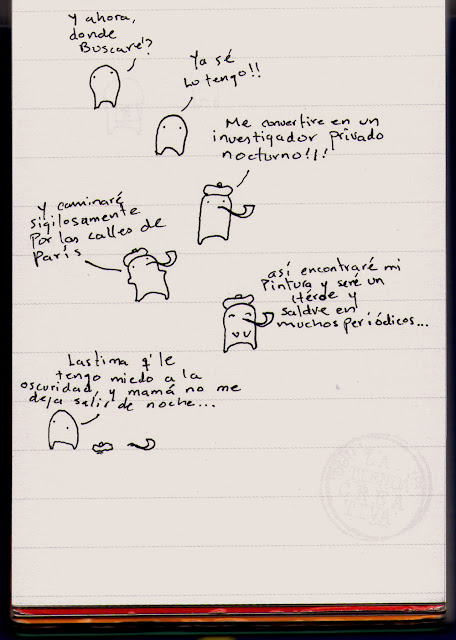 Y ahora,
donde
Buscaré?
Ya sé
Lo tengo!!
Me convertire en un
investigador privado
nocturno!!!
Y caminaré
sigilosamente
por las calles de
París
así encontraré mi
Pintura y seré un
Héroe y
saldré en
muchos periódicos...
Lastima q' le
tengo miedo a la
oscuridad, y mamá no me
deja salir de noche...
LA